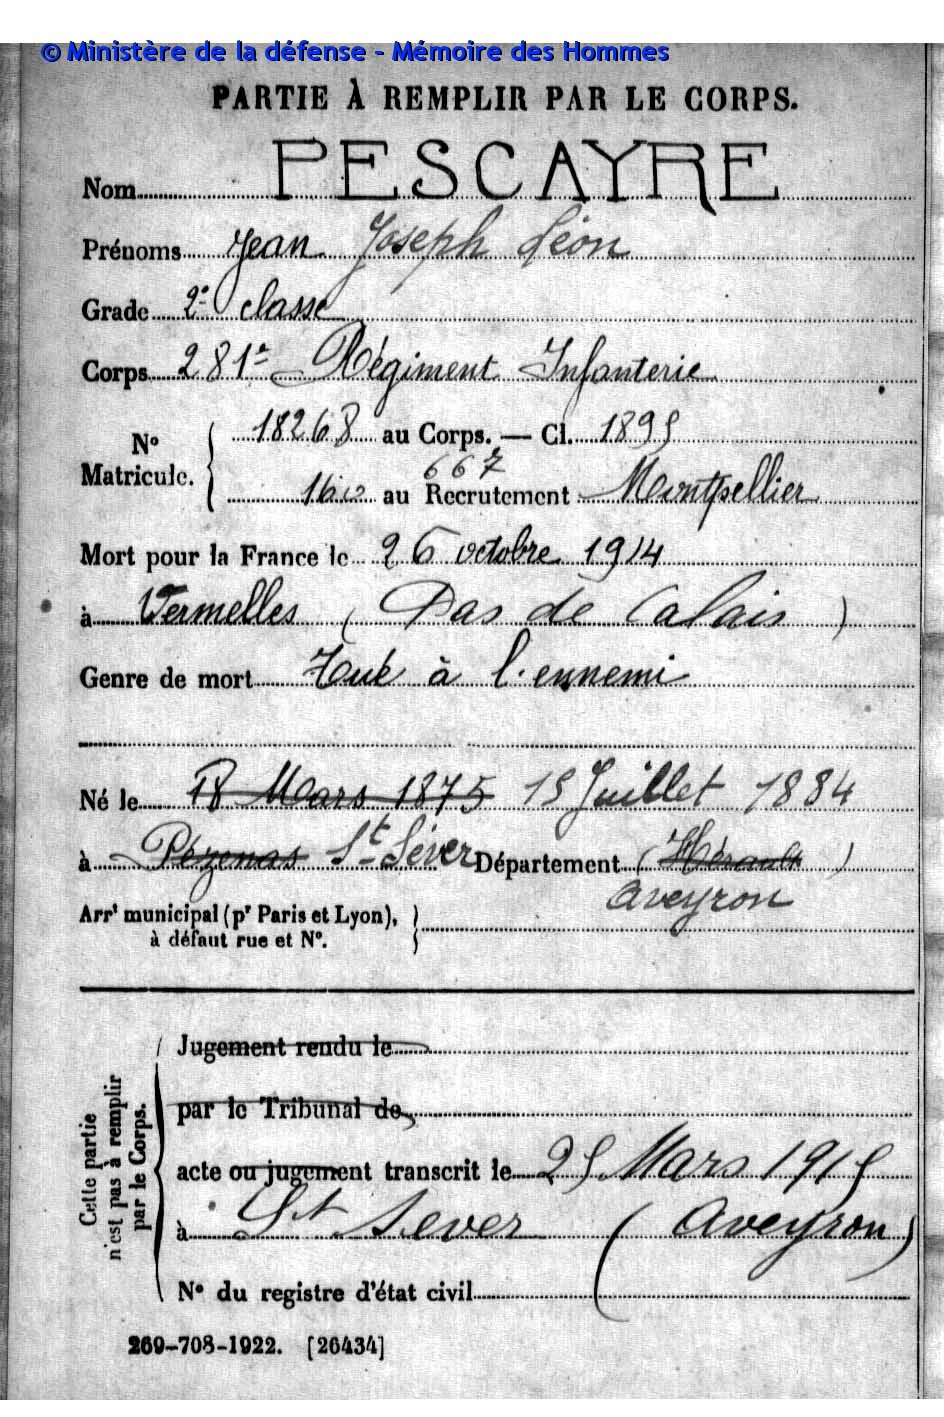 © Ministère de la défense - Mémoire des Hommes
PARTIE À REMPLIR PAR LE CORPS.
Nom PESCAYRE
Prénoms Jean Joseph Léon
Grade 2e classe
Corps 281e Régiment Infanterie
N° Matricule. 18268 au Corps. — Cl. 1895
667
160 au Recrutement Montpellier
Mort pour la France le 26 octobre 1914
à Vermelles (Pas de Calais)
Genre de mort Tué à l'ennemi
Né le 18 Mars 1875 15 Juillet 1884
à Pézenas St Séver Département (Hérault)
Aveyron
Arrt municipal (pr Paris et Lyon),
à défaut rue et N°.
Cette partie
n'est pas à remplir
par le Corps.
Jugement rendu le
par le Tribunal de
acte ou jugement transcrit le 25 Mars 1915
à St Sever (Aveyron)
N° du registre d'état civil
269-708-1922. [26434]